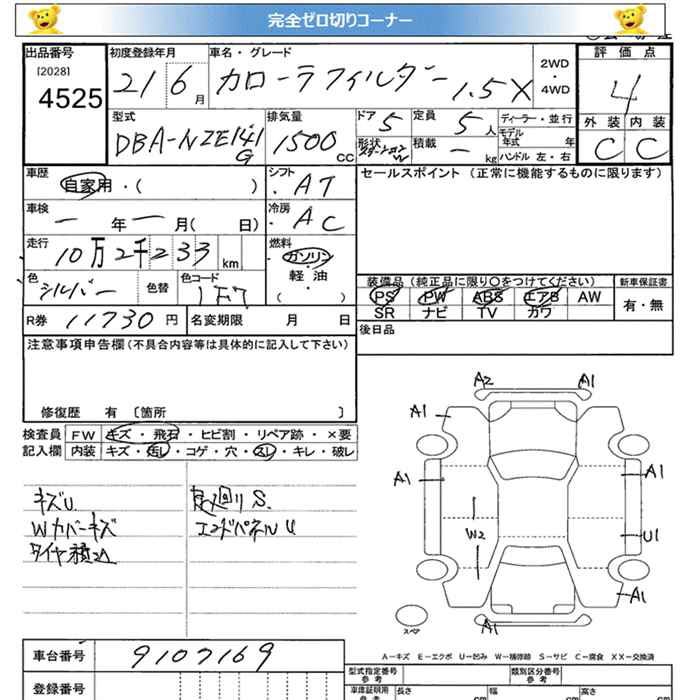 完全ゼロ切りコーナー
出品番号
[2028]
4525
初度登録年月
21 6 月
車名・グレード
カローラフィルダー 1.5X
2WD
・
4WD
評価点
4
外装 内装
C C
型式
DBA-NZE141G
排気量
1500 CC
ドア 5
定員 5 人
形状
積載 ー kg
ディーラー・並行
モデル年式 年
ハンドル 左・右
車歴
自家用・( )
シフト
・AT
セールスポイント (正常に機能するものに限ります)
車検
ー 年 ー 月( 日)
冷房
・AC
走行
10万2千233 km
燃料
ガソリン
・
軽・油
・
( )
色
シルバー
色替
色コード
1F7
装備品 (純正品に限り○をつけてください)
新車保証書
PS PW ABS エアB AW
SR ナビ TV カワ
有・無
R券 11730 円
名変期限 月 日
後日品
注意事項申告欄(不具合内容等は具体的に記入して下さい)
修復歴 有 〔箇所 〕
検査員記入欄
FW キズ・飛石・ヒビ割・リペア跡・×要
内装 キズ・汚レ・コゲ・穴・スレ・キレ・破レ
キズU
Wカバーキズ
タイヤ積込
廻りS.
エンドパネルU
A2 A1
A1
A1 A1
W2 U1
A1
スペア
A1
A-キズ E-エクボ U-凹み W-補修跡 S-サビ C-腐食 XX-交換済
車台番号
9107169
登録番号
型式指定番号
参考
類別区分番号
参考
車庫証明用
参考
長さ cm
幅 cm
高さ cm